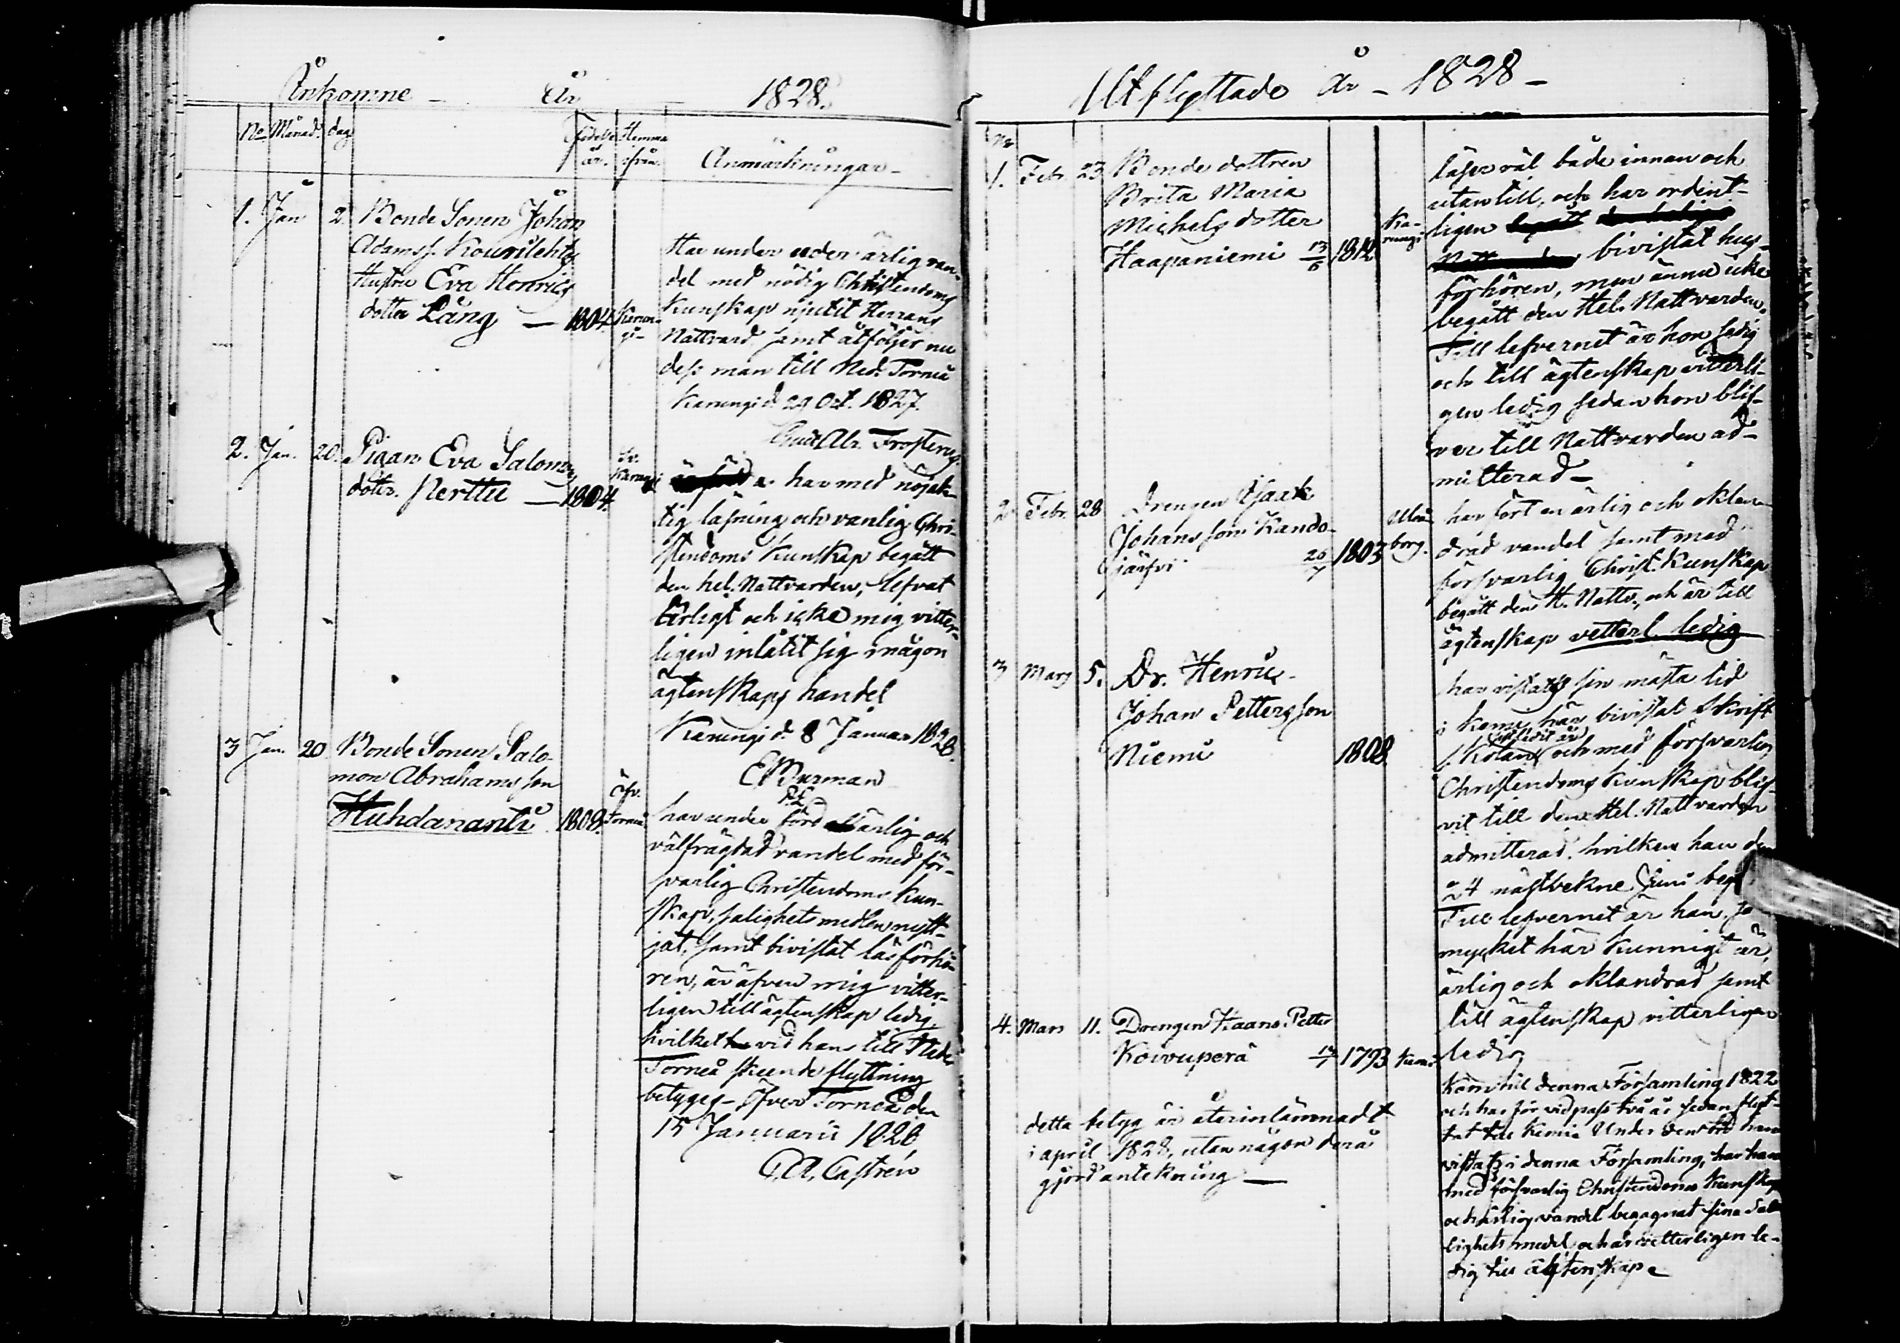 Ankomne - År 1828.
No Månad dag Födelse år. Hemma ifrån. Anmärkningar -
1. Jan 2. Bonde Sonen Johan
Adamss. Kourilehto
Hustru Eva Henrics
dotter Lång — 1804. Karungi-
Har under en ärlig van-
del med nödig Christendoms
Kunskap njutit Herrans
Nattvard samt åtföljer nu
dess man till Ned. Torneå
Karungi d. 29 Oct. 1827.
Abr. Frosterus
2. Jan. 20. Pigan Eva Salomons
dotter. Perttu — 1804. Karungi
har med nöjak-
tig läsning och vanlig Chri-
stendoms Kunskap begått
den hel. Nattvarden, lefvat
ärligt och icke mig vitter-
ligen inlåtit sig i någon
ägtenskaps handel
Karungi d. 8 Januar 1828.
E Burman
3 Jan. 20 Bonde Sonen Salo-
mon Abrahamsson
Huhdanantti 1808. Öfv. Torneå
har under förd ärlig och
välfrägdad vandel med för-
svarlig Christendoms Kun-
skap, salighets medlen nytt-
jat, samt bivistat läsförhö-
ren, är äfven mig vitter-
ligen till ägtenskap ledig,
hvilket vid hans till Neder
Torneå skeende flyttning
betygas - Öfver Torneå den
15 Januarii 1828
Castrén
Utflyttade år - 1828 -
No
1. Febr. 23 Bonde dottren
Brita Maria
Michelsdotter
Haapaniemi 13/6 1812 Ka-
rungi
läser väl både innan och
utan till, och har ordent-
ligen begått den helige
Nattvarden bivistat hus-
förhören, men ännu icke
begått den Hel. Nattvarden.
Till lefvernet är hon sedig
och till ägtenskap vitterli-
gen ledig sedan hon blif-
ver till Nattvarden ad-
mitterad -
2 Febr. 28 Drengen Isaak
Johansson Kando-
järfvi 26/7 1803 Uleå
borg.
har fört en ärlig och oklan-
drad vandel samt med
försvarlig Christ. Kunskap
begått den H. Nattv., och är till
ägtenskap vetterl. ledig
3 Mars 5. Dr. Henric
Johan Pettersson
Niemi 1808
har vistats sin mästa tid
i Kemi, här bivistat Skrift
Skolan och med försvarlig
Christendoms Kunskap blif-
vit till den Hel. Nattvarden
admitterad. hvilken han den
24 nästvekne Juni
Till lefvernet är han, så
mycket här kunnigt är,
ärlig och oklandrad samt
till ägtenskap vitterligen
ledig
4. Mars 11. Drengen Haans Petter
Koivuperä 17/7 1793 Kemi
detta betyg är återinlämnadt
i april 1828, utan någon derå
gjord antekning —
Kom till denna Församling 1822
och har för vid pass två år sedan flyt-
tat till Kemi. Under den tid han
vistats i denna Församling, har han
med försvarlig Christendoms Kunskap
och ärlig vandel begagnat sina Sa-
lighets medel och är vetterligen le-
dig till ägtenskap -